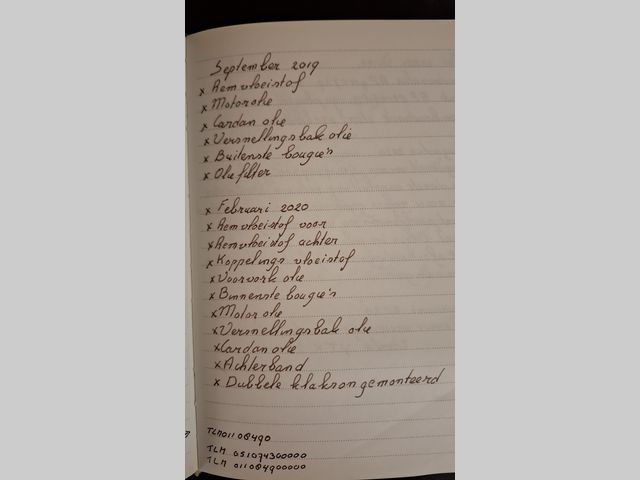 September 2019
x Remvloeistof
x Motorolie
x Cardan olie
x Versnellingsbak olie
x Buitenste bougie's
x Oliefilter
x Februari 2020
x Remvloeistof voor
x Remvloeistof achter
x Koppelings vloeistof
x Voorvork olie
x Binnenste bougie's
x Motorolie
x Versnellingsbak olie
x Cardan olie
x Achterband
x Dubbele klakson gemonteerd
TLM01108490
TLM 051074300000
TLM 011084900000